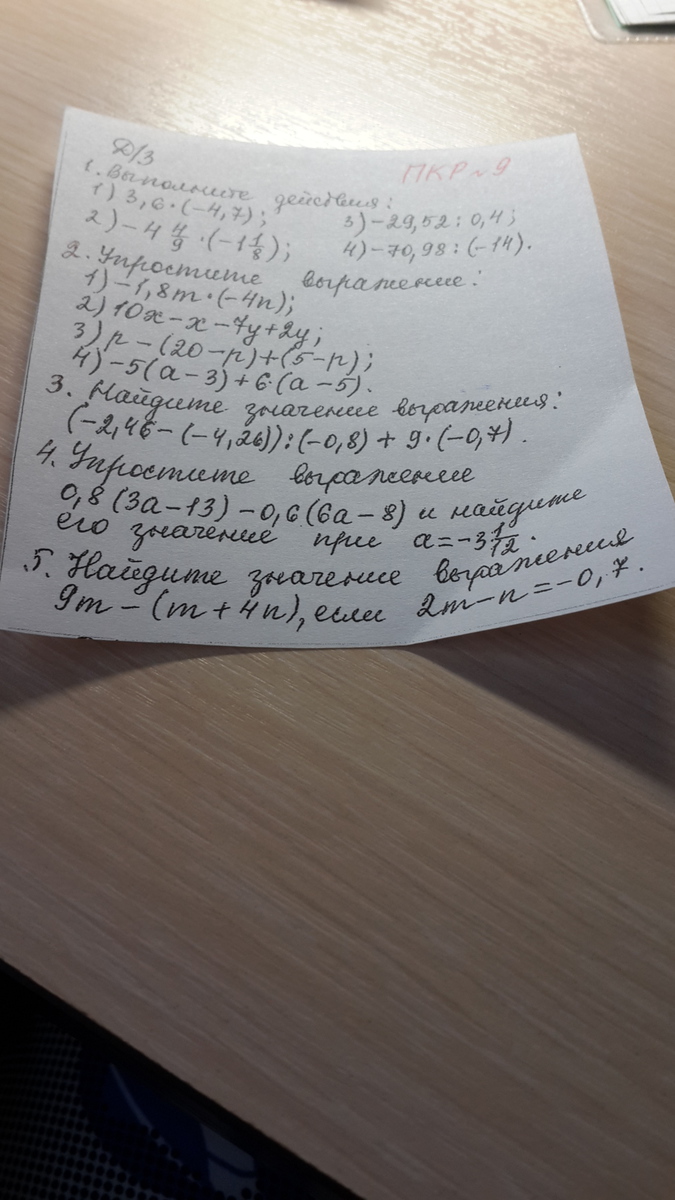 Д/З
ПКР №9
1. Выполните действия:
1) 3,6·(-4,7); 3) -29,52 : 0,4;
2) -4 4/9 · (-1 1/8); 4) -70,98 : (-14).
2. Упростите выражение:
1) -1,8m·(-4n);
2) 10x-x-7y+2y;
3) p-(20-p)+(5-p);
4) -5(a-3)+6·(a-5).
3. Найдите значение выражения:
(-2,46-(-4,26)):(-0,8) + 9·(-0,7).
4. Упростите выражение
0,8(3a-13)-0,6(6a-8) и найдите
его значение при a=-3 1/12.
5. Найдите значение выражения
9m-(m+4n), если 2m-n=-0,7.